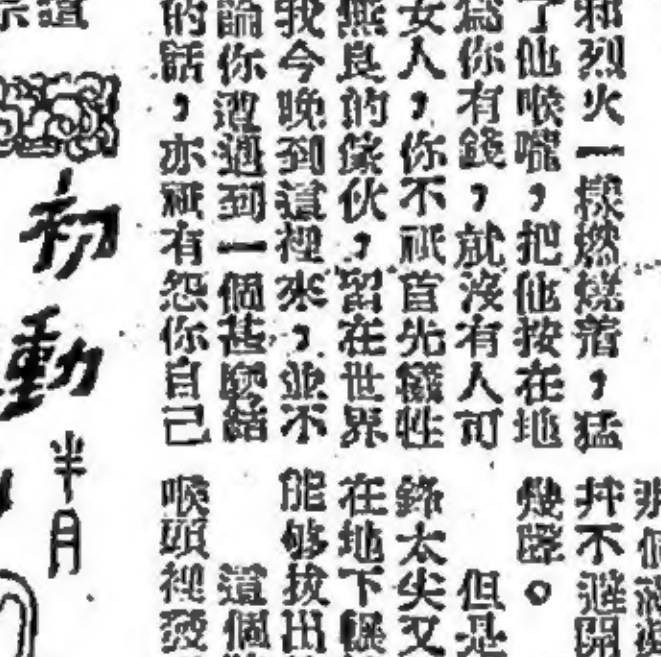 烈火一樣燃燒着，猛
了他喉嚨，把他按在地
為你有錢，就沒有人可
女人，你不祇首先犧牲
無良的傢伙，留在世界
我今晚到這裡來，並不
論你遭遇到一個甚麼結
的話，亦祇有怨你自己
并不避開
幾
但是
鋒太尖又
在地下
能够拔出
這個
喉頭裡發
初動
半月